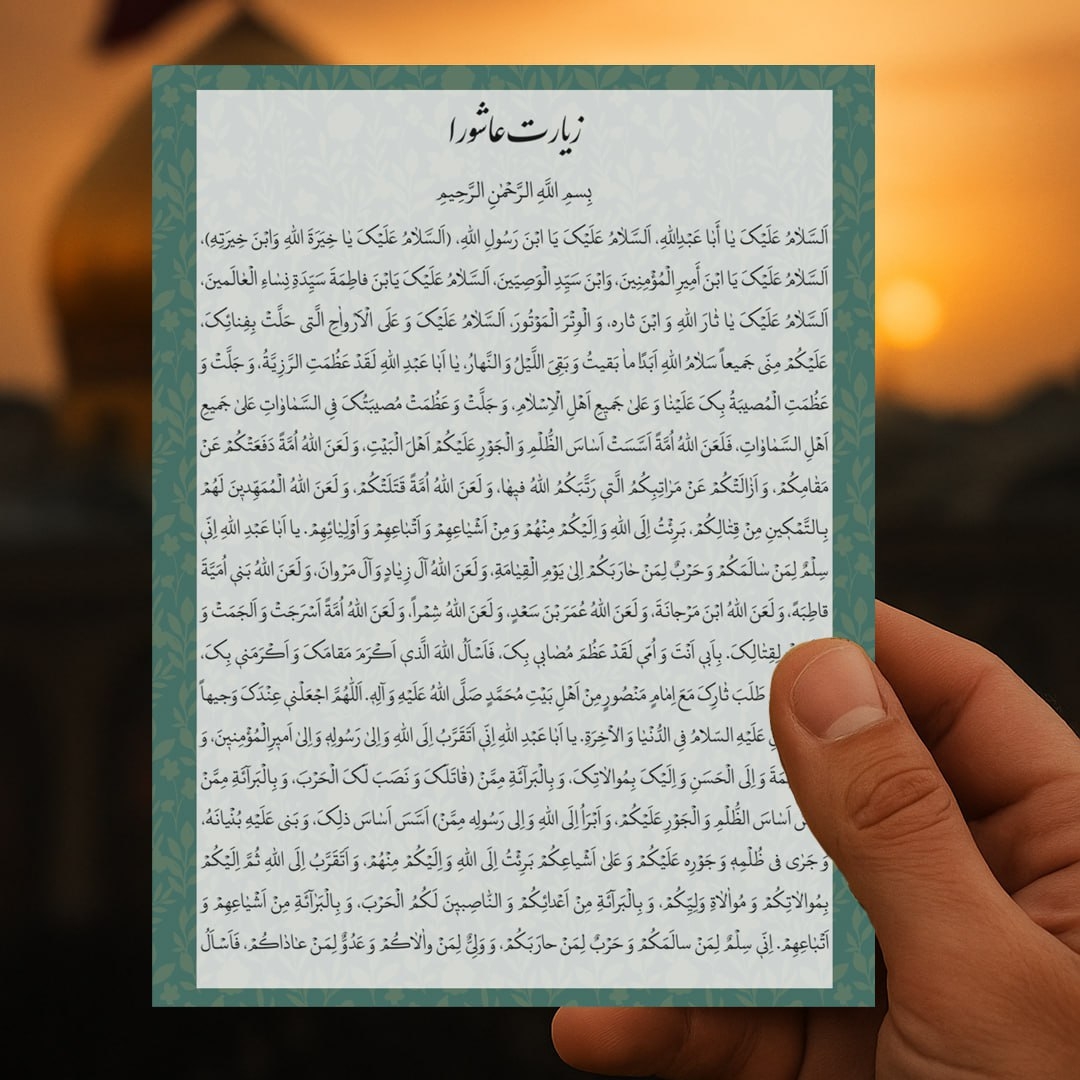 زیارت عاشورا
بِسمِ اللَّهِ الرَّحْمٰنِ الرَّحِیمِ
اَلسَّلامُ عَلَیْکَ یٰا أَبٰا عَبْدِاللهِ، اَلسَّلٰامُ عَلَیْکَ یَا ابْنَ رَسُولِ اللهِ، (اَلسَّلٰامُ عَلَیْکَ یٰا خِیَرَةَ اللهِ وَابْنَ خِیَرَتِهِ)،
اَلسَّلٰامُ عَلَیْکَ یَا ابْنَ أَمِیرِ الْمُؤْمِنِینَ، وَابْنَ سَیِّدِ الْوَصِیّینَ، اَلسَّلٰامُ عَلَیْکَ یَابْنَ فاطِمَةَ سَیِّدَةِ نِساءِ الْعٰالَمینَ،
اَلسَّلٰامُ عَلَیْکَ یٰا ثٰارَ اللهِ وَ ابْنَ ثارِه، وَ الْوِتْرَ الْمَوْتُورَ، اَلسَّلٰامُ عَلَیْکَ وَ عَلَی الْاَرواٰحِ الَّتی حَلَّتْ بِفِنائِکَ،
عَلَیْکُمْ مِنّی جَمیعاً سَلامُ اللهِ اَبَدًا ماٰ بَقیتُ وَ بَقِیَ اللَّیْلُ وَ النَّهارُ، یٰا اَبٰا عَبْدِ اللهِ لَقَدْ عَظُمَتِ الرَّزِیَّةُ، وَ جَلَّتْ وَ
عَظُمَتِ الْمُصیبَةُ بِکَ عَلَیْنٰا وَ عَلیٰ جَمیعِ اَهْلِ الْاِسْلامِ، وَ جَلَّتْ وَ عَظُمَتْ مُصیبَتُکَ فِی السَّمٰاوٰاتِ عَلیٰ جَمیعِ
اَهْلِ السَّمٰاوٰاتِ، فَلَعَنَ اللهُ اُمَّةً اَسَّسَتْ اَساسَ الظُّلْمِ وَ الْجَوْرِ عَلَیْکُمْ اَهْلَ الْبَیْتِ، وَ لَعَنَ اللهُ اُمَّةً دَفَعَتْکُمْ عَنْ
مَقٰامِکُمْ، وَ اَزٰالَتْکُمْ عَنْ مَرٰاتِبِکُمُ الَّتی رَتَّبَکُمُ اللهُ فیهٰا، وَ لَعَنَ اللهُ اُمَّةً قَتَلَتْکُمْ، وَ لَعَنَ اللهُ الْمُمَهِّدینَ لَهُمْ
بِالتَّمْکینِ مِنْ قِتٰالِکُمْ، بَرِئْتُ اِلَی اللهِ وَ اِلَیْکُمْ مِنْهُمْ وَ مِنْ اَشْیٰاعِهِمْ وَ اَتْبٰاعِهِمْ وَ اَوْلِیٰائِهِمْ. یا اَبٰا عَبْدِ اللهِ اِنّی
سِلْمٌ لِمَنْ سٰالَمَکُمْ وَ حَرْبٌ لِمَنْ حٰارَبَکُمْ اِلیٰ یَوْمِ الْقِیٰامَةِ، وَ لَعَنَ اللهُ آلَ زِیٰادٍ وَ آلَ مَرْوانَ، وَ لَعَنَ اللهُ بَنی اُمَیَّةَ
قاطِبَةً، وَ لَعَنَ اللهُ ابْنَ مَرْجانَةَ، وَ لَعَنَ اللهُ عُمَرَ بْنَ سَعْدٍ، وَ لَعَنَ اللهُ شِمْراً، وَ لَعَنَ اللهُ اُمَّةً اَسْرَجَتْ وَ اَلْجَمَتْ وَ
لِقِتٰالِکَ. بِاَبی اَنْتَ وَ اُمّی لَقَدْ عَظُمَ مُصٰابی بِکَ، فَاَسْاَلُ اللهَ الَّذی اَکْرَمَ مَقٰامَکَ وَ اَکْرَمَنی بِکَ،
طَلَبَ ثٰارِکَ مَعَ اِمٰامٍ مَنْصُورٍ مِنْ اَهْلِ بَیْتِ مُحَمَّدٍ صَلَّی اللهُ عَلَیْهِ وَ آلِهِ. اَللّٰهُمَّ اجْعَلْنی عِنْدَکَ وَجیهاً
عَلَیْهِ السَلامُ فِی الدُّنْیٰا وَ الآخِرَةِ. یا اَبٰا عَبْدِ اللهِ اِنّی اَتَقَرَّبُ اِلَی اللهِ وَ اِلیٰ رَسُولِهِ وَ اِلیٰ اَمیرِالْمُؤْمِنینَ، وَ
وَ اِلَی الْحَسَنِ وَ اِلَیْکَ بِمُوالاٰتِکَ، وَ بِالْبَرآئَةِ مِمَّنْ (قٰاتَلَکَ وَ نَصَبَ لَکَ الْحَرْبَ، وَ بِالْبَرآئَةِ مِمَّنْ
اَسٰاسَ الظُّلْمِ وَ الْجَوْرِ عَلَیْکُمْ، وَ اَبْرَأُ اِلَی اللهِ وَ اِلی رَسُولِه مِمَّنْ) اَسَّسَ اَساسَ ذلِکَ، وَ بَنی عَلَیْهِ بُنْیانَهُ،
وَ جَرٰی فی ظُلْمِهِ وَ جَوْرِه عَلَیْکُمْ وَ عَلیٰ اَشْیاعِکُمْ بَرِئْتُ اِلَی اللهِ وَ اِلَیْکُمْ مِنْهُمْ، وَ اَتَقَرَّبُ اِلَی اللهِ ثُمَّ اِلَیْکُمْ
بِمُوالاٰتِکُمْ وَ مُوالاٰةِ وَلِیِّکُمْ، وَ بِالْبَرآئَةِ مِنْ اَعْدٰائِکُمْ وَ النّٰاصِبینَ لَکُمُ الْحَرْبَ، وَ بِالْبَرَآئَةِ مِنْ اَشْیٰاعِهِمْ وَ
اَتْبٰاعِهِمْ. اِنّی سِلْمٌ لِمَنْ سالَمَکُمْ وَ حَرْبٌ لِمَنْ حارَبَکُمْ، وَ وَلِیٌّ لِمَنْ والٰاکُمْ وَ عَدُوٌّ لِمَنْ عٰادٰاکُمْ، فَاَسْاَلُ